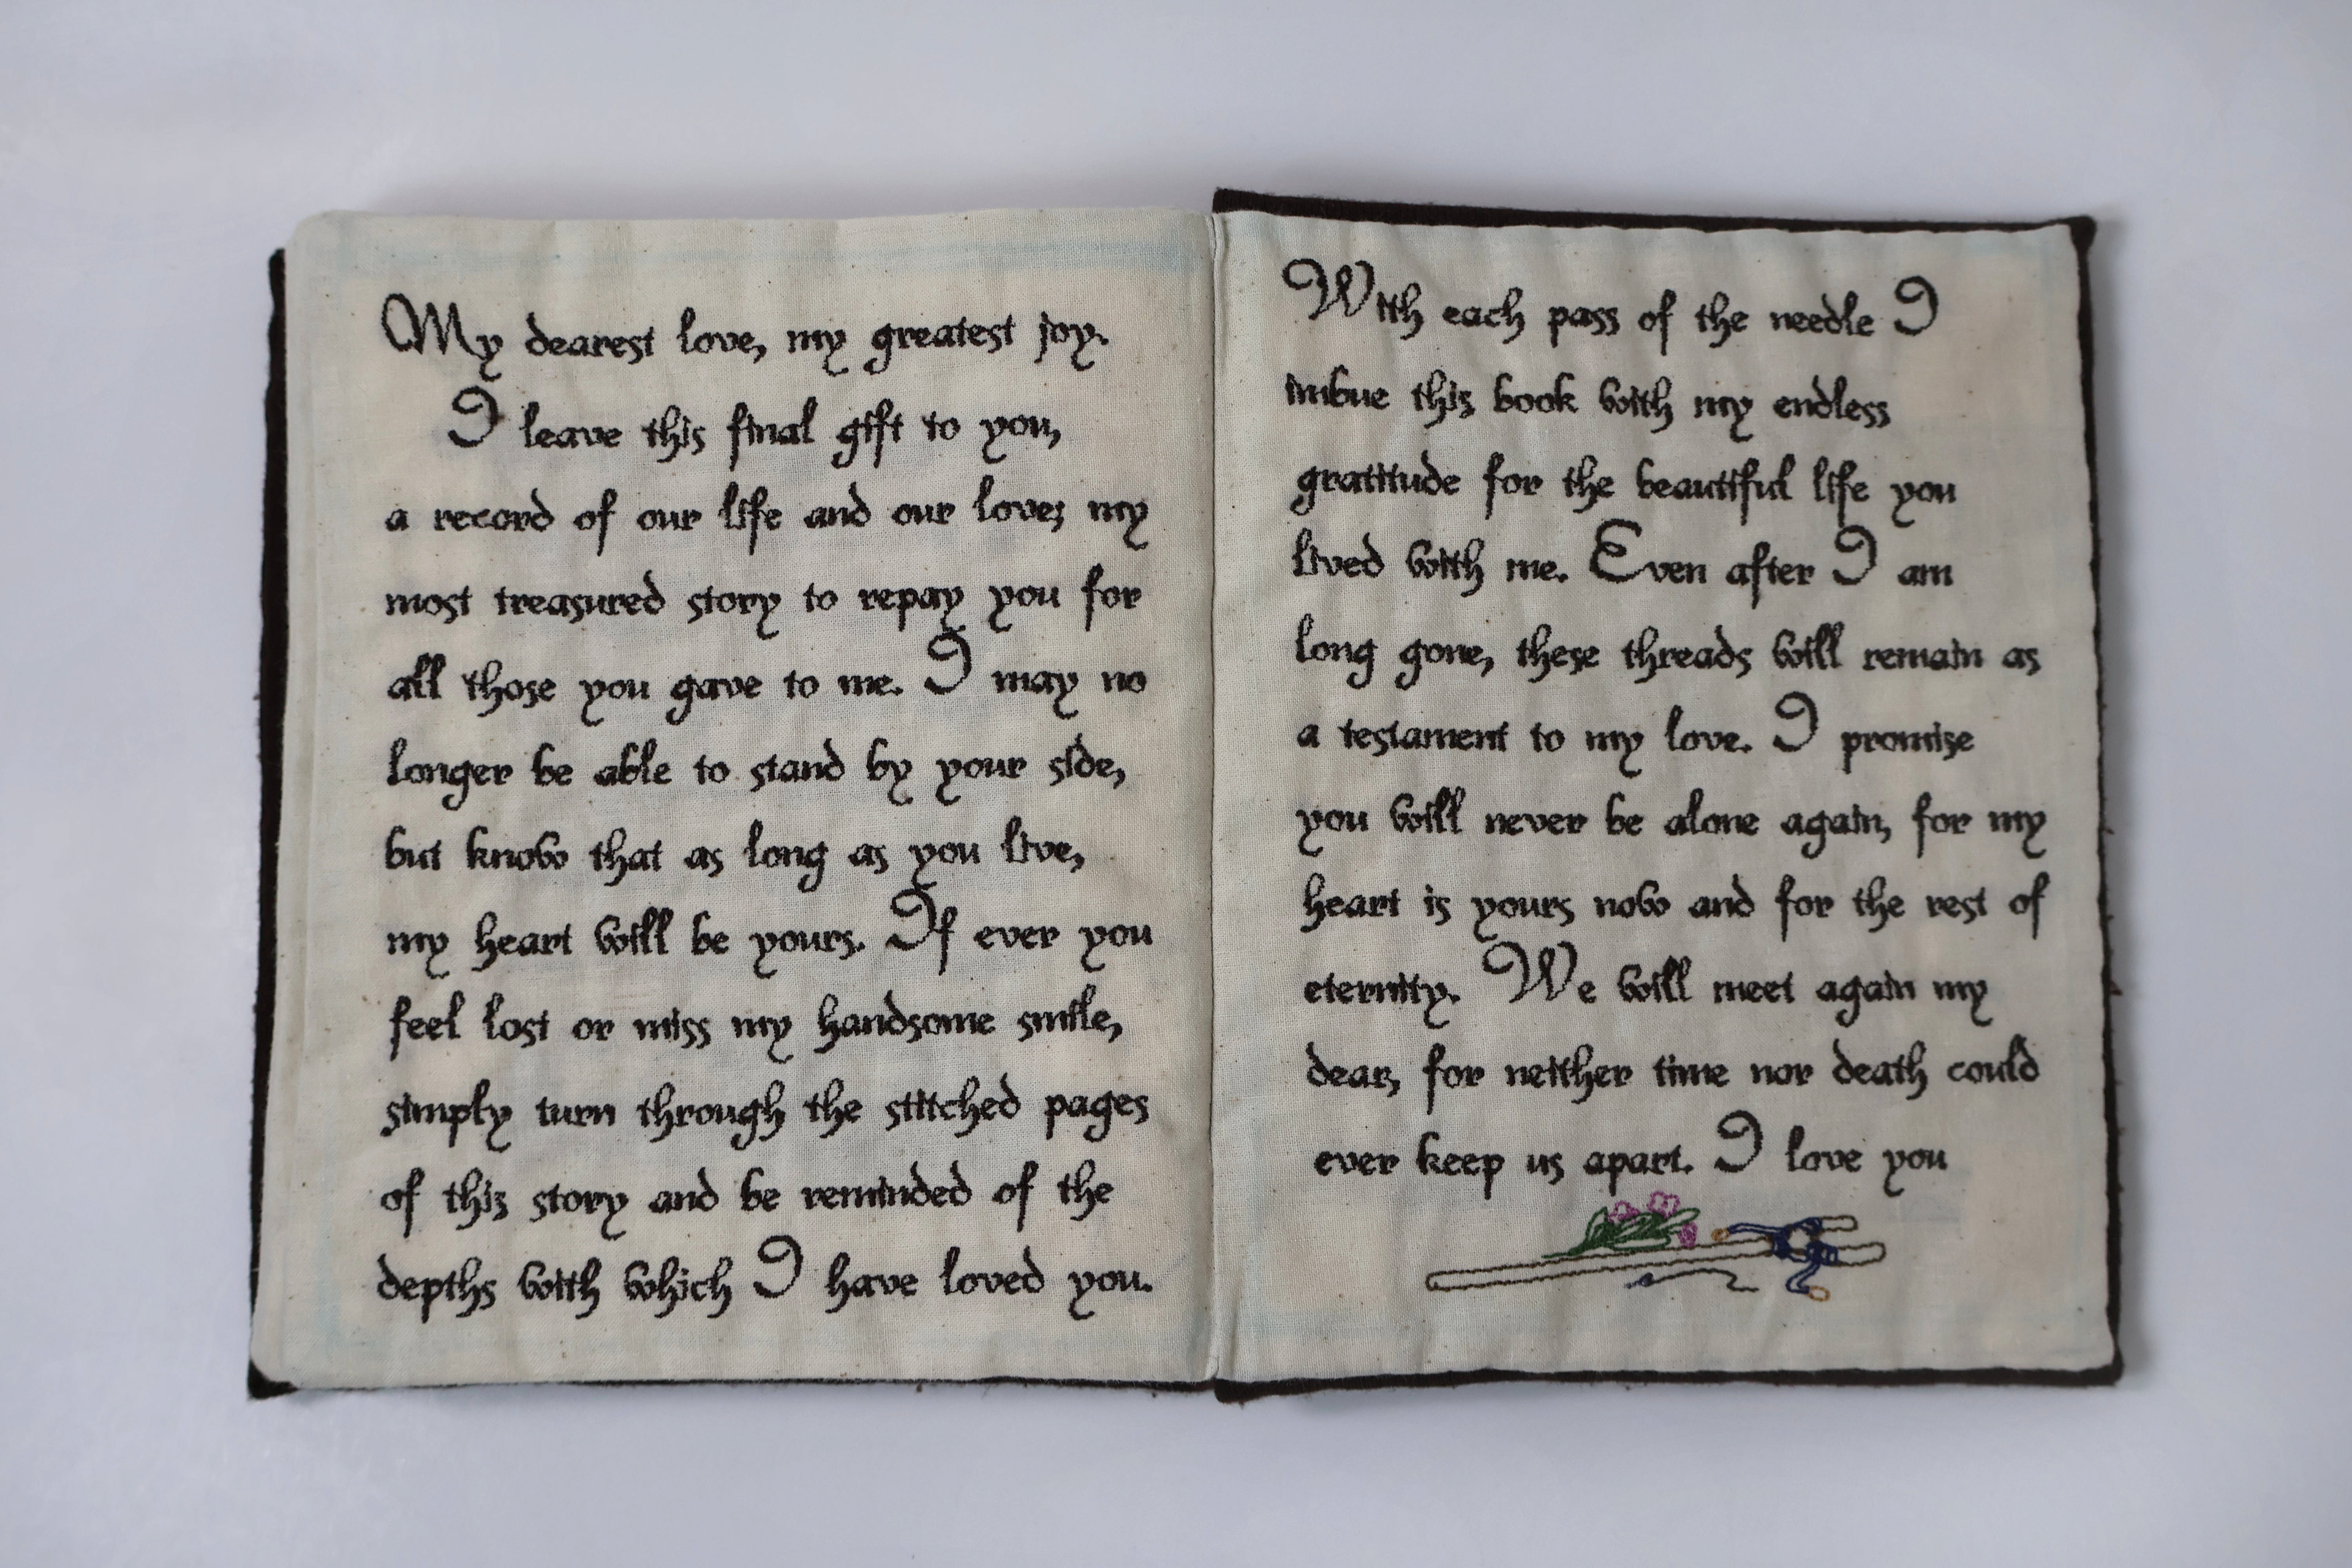 My dearest love, my greatest joy.
I leave this final gift to you,
a record of our life and our love; my
most treasured story to repay you for
all those you gave to me. I may no
longer be able to stand by your side,
but know that as long as you live,
my heart will be yours. If ever you
feel lost or miss my handsome smile,
simply turn through the stitched pages
of this story and be reminded of the
depths with which I have loved you.
With each pass of the needle I
imbue this book with my endless
gratitude for the beautiful life you
lived with me. Even after I am
long gone, these threads will remain as
a testament to my love. I promise
you will never be alone again, for my
heart is yours now and for the rest of
eternity. We will meet again my
dear, for neither time nor death could
ever keep us apart. I love you